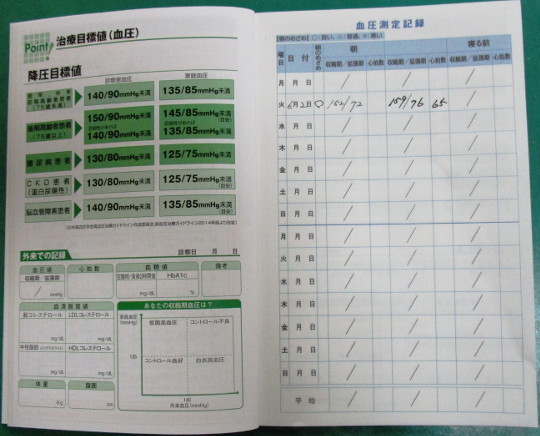 Point!
治療目標値(血圧)
降圧目標値
診察室血圧 家庭血圧
140/90mmHg未満 135/85mmHg未満
後期高齢者患者
(75歳以上)
150/90mmHg未満 145/85mmHg未満
140/90mmHg未満 135/85mmHg未満
糖尿病患者 130/80mmHg未満 125/75mmHg未満
CKD患者
(蛋白尿陽性)
130/80mmHg未満 125/75mmHg未満
(目安)
脳血管障害患者 140/90mmHg未満 135/85mmHg未満
(目安)
外来での記録
診察日 月 日
血圧値 心拍数 血糖値 備考
収縮期/拡張期 HbA1c
/ mmHg mg/dL %
血清脂質値
総コレステロール LDLコレステロール
mg/dL mg/dL
中性脂肪 HDLコレステロール
mg/dL mg/dL
体重 腹囲
kg cm
あなたの収縮期血圧は?
家庭血圧
(mmHg)
仮面高血圧 コントロール不良
135
コントロール良好 白衣高血圧
140
外来血圧(mmHg)
血圧測定記録
曜日 日付 朝のめざめ 朝 寝る前
収縮期/拡張期 心拍数 収縮期/拡張期 心拍数 収縮期/拡張期 心拍数
月 月 日 / / /
火 6月2日 152/72 159/76 65 /
水 月 日 / / /
木 月 日 / / /
金 月 日 / / /
土 月 日 / / /
日 月 日 / / /
月 月 日 / / /
火 月 日 / / /
水 月 日 / / /
木 月 日 / / /
金 月 日 / / /
土 月 日 / / /
日 月 日 / / /
平均 / / /